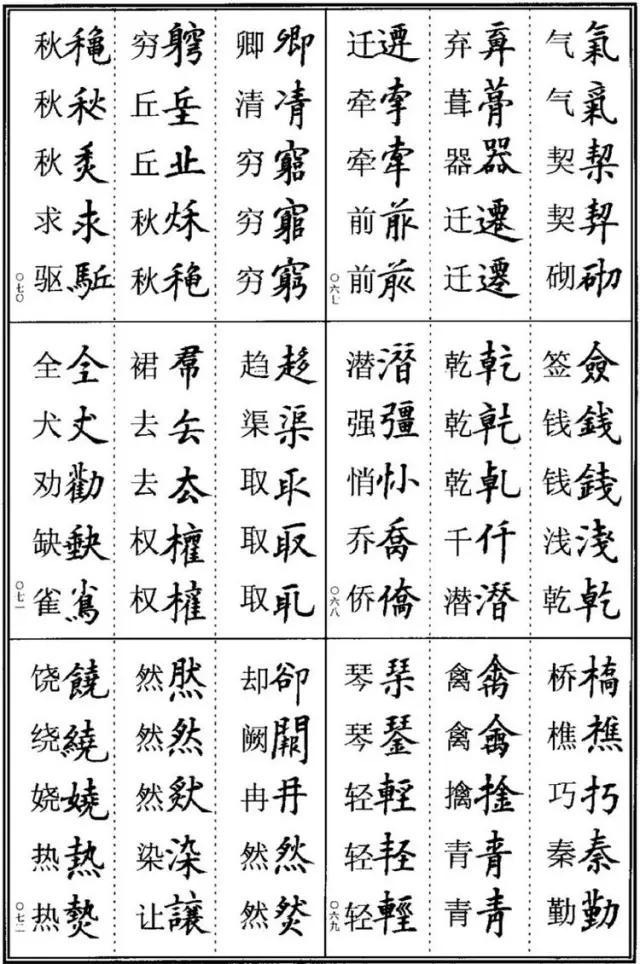 气氣
气氣
契契
契契
砌砌
弃弃
葺葺
器器
迁遷
迁遷
迁遷
牵牽
牵牽
前前
前前
〇六七
签僉
钱錢
钱錢
浅淺
乾乾
乾乾
乾乾
乾乾
千仟
潜潛
潜潛
强彊
悄悄
乔喬
侨僑
〇六八
桥橋
樵樵
巧巧
秦秦
勤勤
禽禽
禽禽
擒捦
青青
青青
琴琴
琴琴
轻輕
轻轻
轻輕
〇六九
卿卿
清清
穷窮
穷窮
穷窮
穷竆
丘丘
丘丘
秋秌
秋龝
秋龝
秋秋
秋秋
求求
驱駈
〇七〇
趋趍
渠渠
取取
取取
取取
裙帬
去去
去厺
权權
权權
全仝
犬犬
劝勸
缺缺
雀雀
〇七一
却卻
阙闕
冉冉
然然
然然
然然
然然
然然
染染
让讓
饶饒
绕繞
娆嬈
热熱
热熱
〇七二